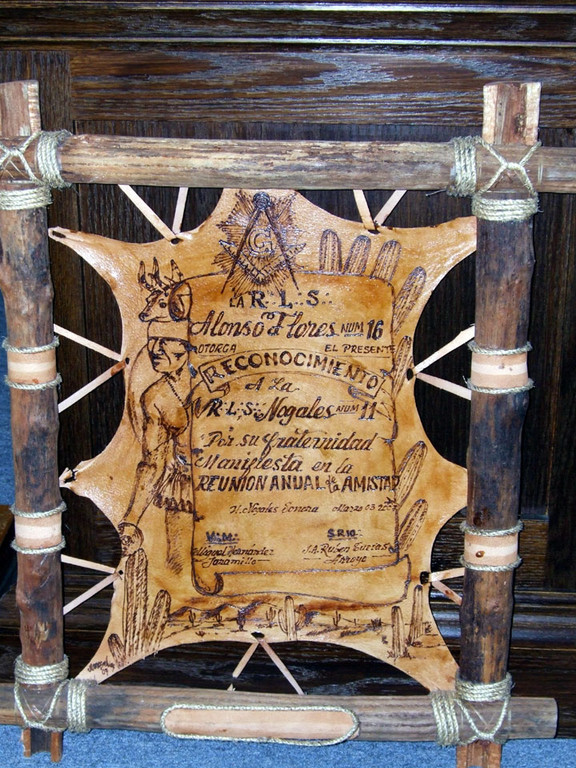 G
LA R∴L∴S∴
Alonso Flores NUM 16
OTORGA EL PRESENTE
RECONOCIMIENTO
A La
R∴L∴S∴ Nogales NUM 11
Por su fraternidad
Manifiesta en la
REUNION ANUAL de la AMISTAD
H. Nogales Sonora Marzo 03 2007
V∴M∴ SRIO∴
Miguel Hernández J.A. Rubén
Jaramillo Arroyo